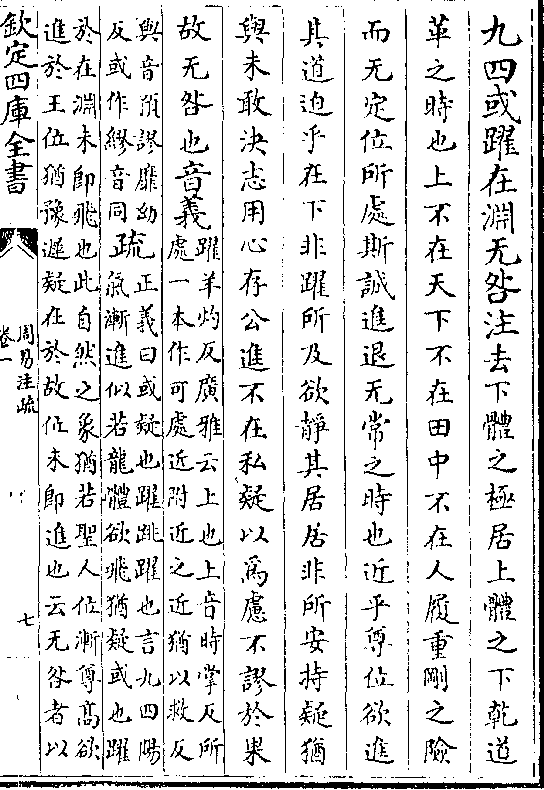 九四或躍在淵无咎注去下體之極居上體之下乾道
革之時也上不在天下不在田中不在人履重剛之險
而无定位所處斯誠進退无常之時也近乎尊位欲進
其道迫乎在下非躍所及欲靜其居居非所安持疑猶
與未敢決志用心存公進不在私疑以爲慮不謬於果
故无咎也音義
躍羊灼反廣雅云上也上音時掌反所
處一本作可處近附近之近猶以救反
與音預謬靡幼
反或作繆音同
疏
正義曰或疑也躍跳躍也言九四陽
氣漸進似若龍體欲飛猶疑或也躍
於在淵未即飛也此自然之象猶若聖人位漸尊高欲
進於王位猶豫遲疑在於故位未即進也云无咎者以
欽定四庫全書
周易注疏
卷一
七